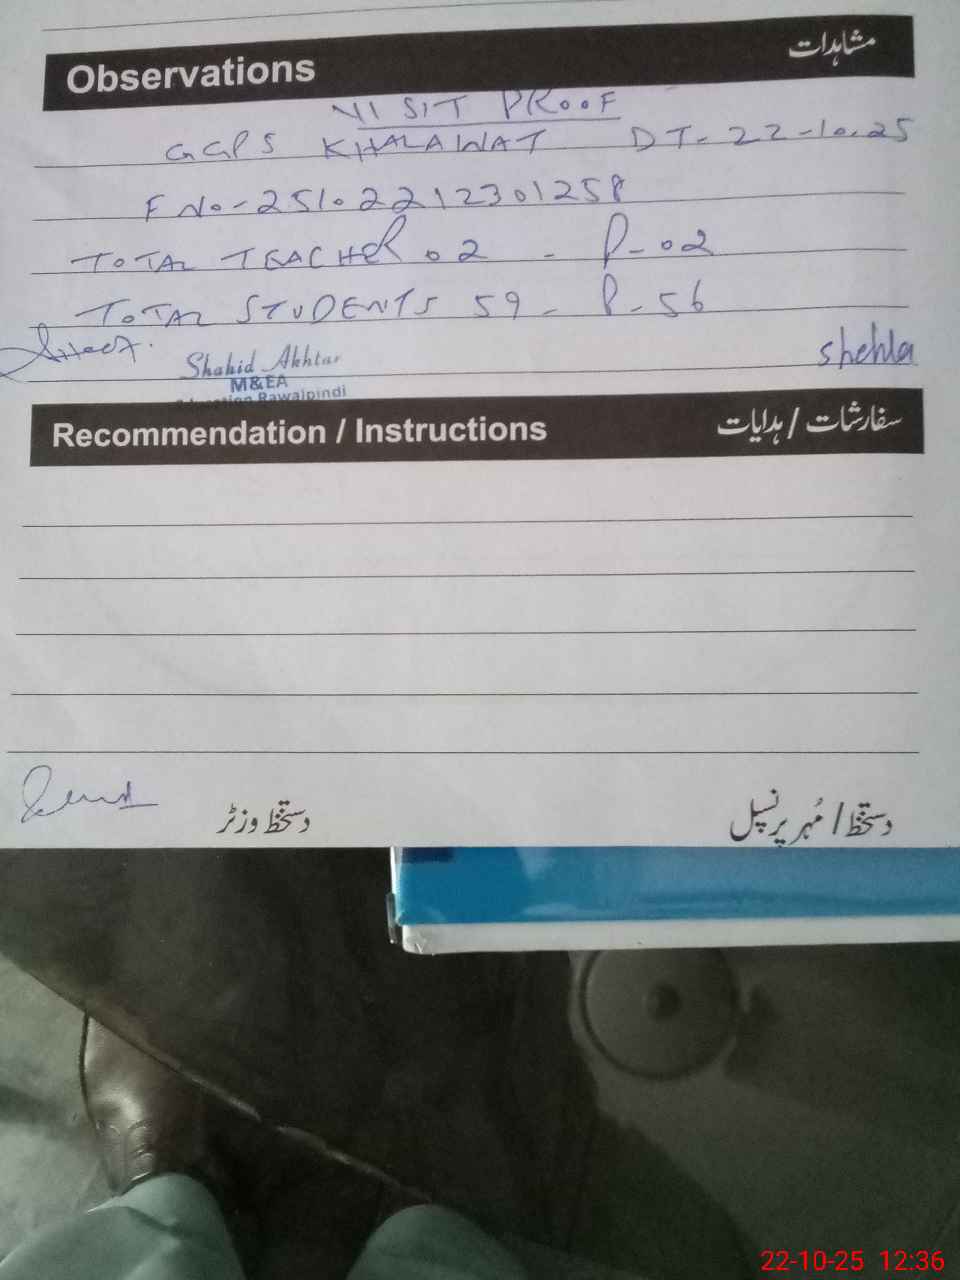 Observations مشاہدات
VISIT PROOF
GGPS KHALAWAT DT- 22-10-25
F No- 25102212301258
TOTAL TEACHER 02 - P-02
TOTAL STUDENTS 59 - P-56
Shahid Akhtar
M&EA
Rawalpindi
shehla
Recommendation / Instructions سفارشات / ہدایات
دستخط وزٹر دستخط / مُہر پرنسپل
22-10-25 12:36